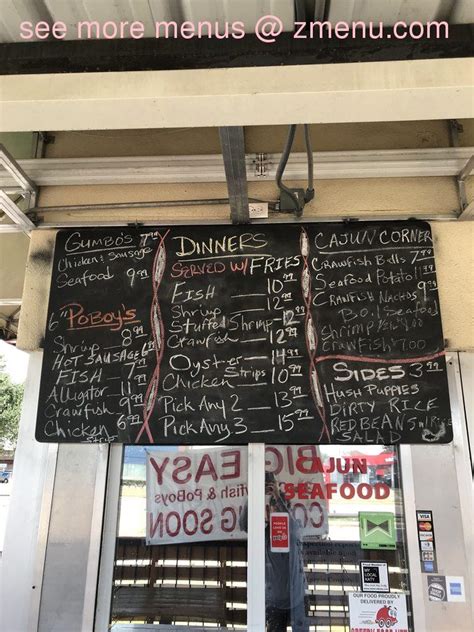 see more menus @ zmenu.com
GUMBO'S 7.99
Chicken & Sausage
Seafood 9.99
6" POBOY'S
Shrup 8.99
HOT SAUSAGE 6.99
FISH 7.99
Alligator 11.99
Crawfish 9.99
Chicken Strips 6.99
DINNERS
SERVED W/ FRIES
FISH 10.99
Shrup 12.99
Stuffed Shrimp 12.99
Crawfish 12.99
Oyster 14.99
Chicken Strips 10.99
Pick Any 2 13.99
Pick Any 3 15.99
CAJUN CORNER
CRAWFISH Bills 7.99
Seafood Potato
CRAWFISH NACHOS 9.99
Boil Seafood
SHRIMP
CRAWFISH 7.00
SIDES 3.99
HUSH PUPPIES
DIRTY RICE
RED BEANS
SALAD
BIG EASY
CAJUN
SEAFOOD
fish & PoBoys
COMING SOON
VISA
MY LOCAL KATY
OUR FOOD PROUDLY
DELIVERED BY